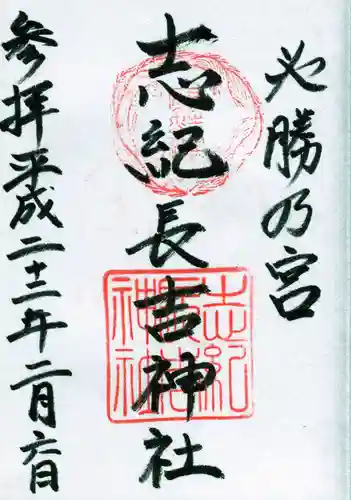 必勝乃宮
志紀長吉神社
参拝平成二十二年二月六日
志紀
長吉
神社